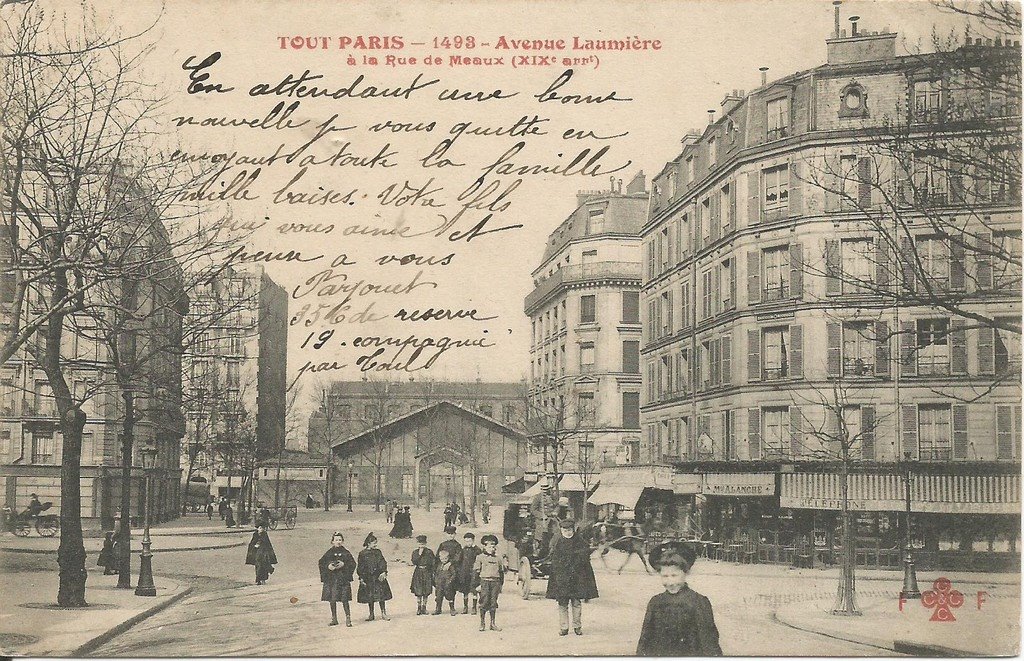 TOUT PARIS – 1493 – Avenue Laumière
à la Rue de Meaux (XIXe arrt)
En attendant une bonne
nouvelle je vous quitte en
envoyant a toute la famille
mille baises. Votre fils
qui vous aime et
pense a vous
Parjouet
35 de reserve
19. compagnie
par Toul
AU BLANCHE
TELEPHONE
F F
C C C C